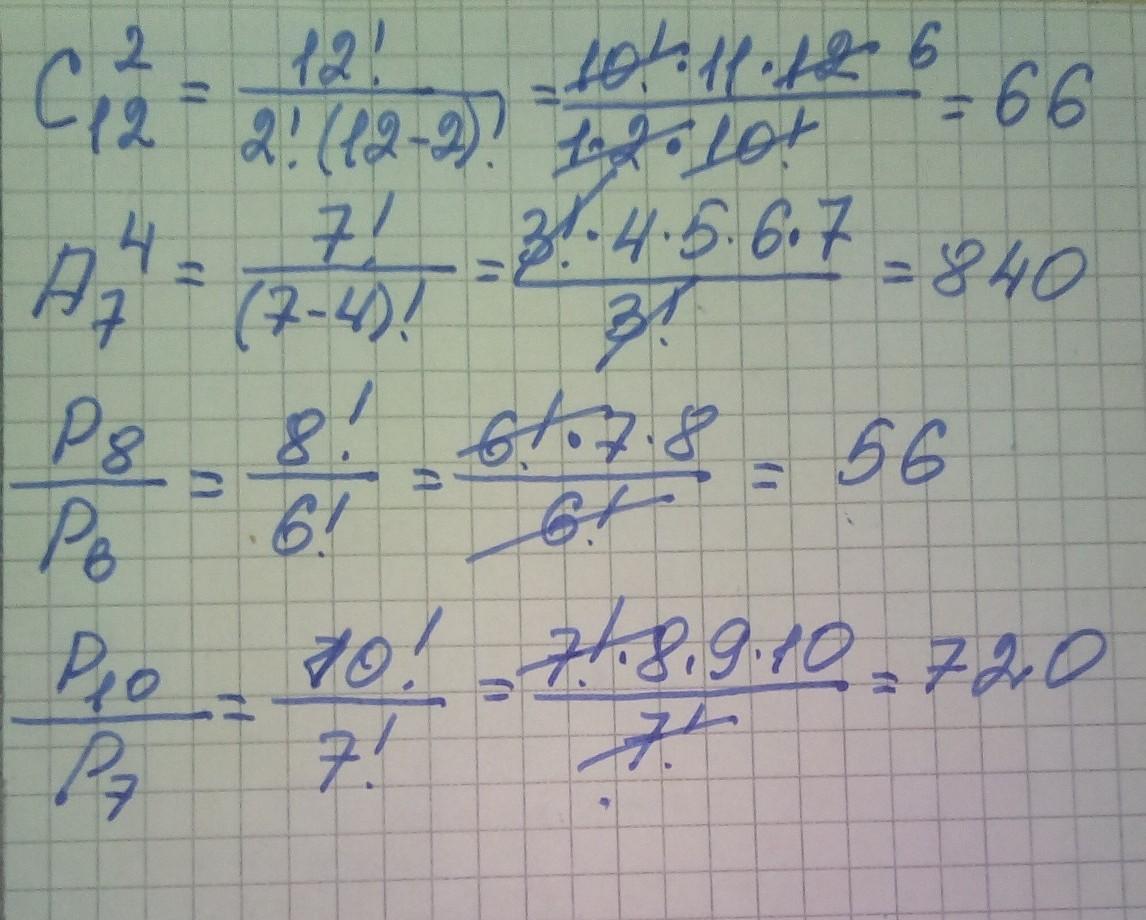 C₁₂² = 12! / 2!(12-2)! = 10!·11·12 6 / 1·2·10! = 66
A₇⁴ = 7! / (7-4)! = 3!·4·5·6·7 / 3! = 840
P₈ / P₆ = 8! / 6! = 6!·7·8 / 6! = 56
P₁₀ / P₇ = 10! / 7! = 7!·8·9·10 / 7! = 720